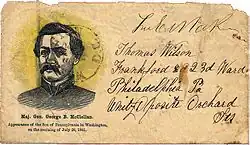 Thomas Wilson
Frankford 23d Ward
Philadelphia Pa
Orchard
Maj. Gen. George B. McClellan.
Appearance of the Son of Pennsylvania in Washington,
on the morning of July 26, 1861.